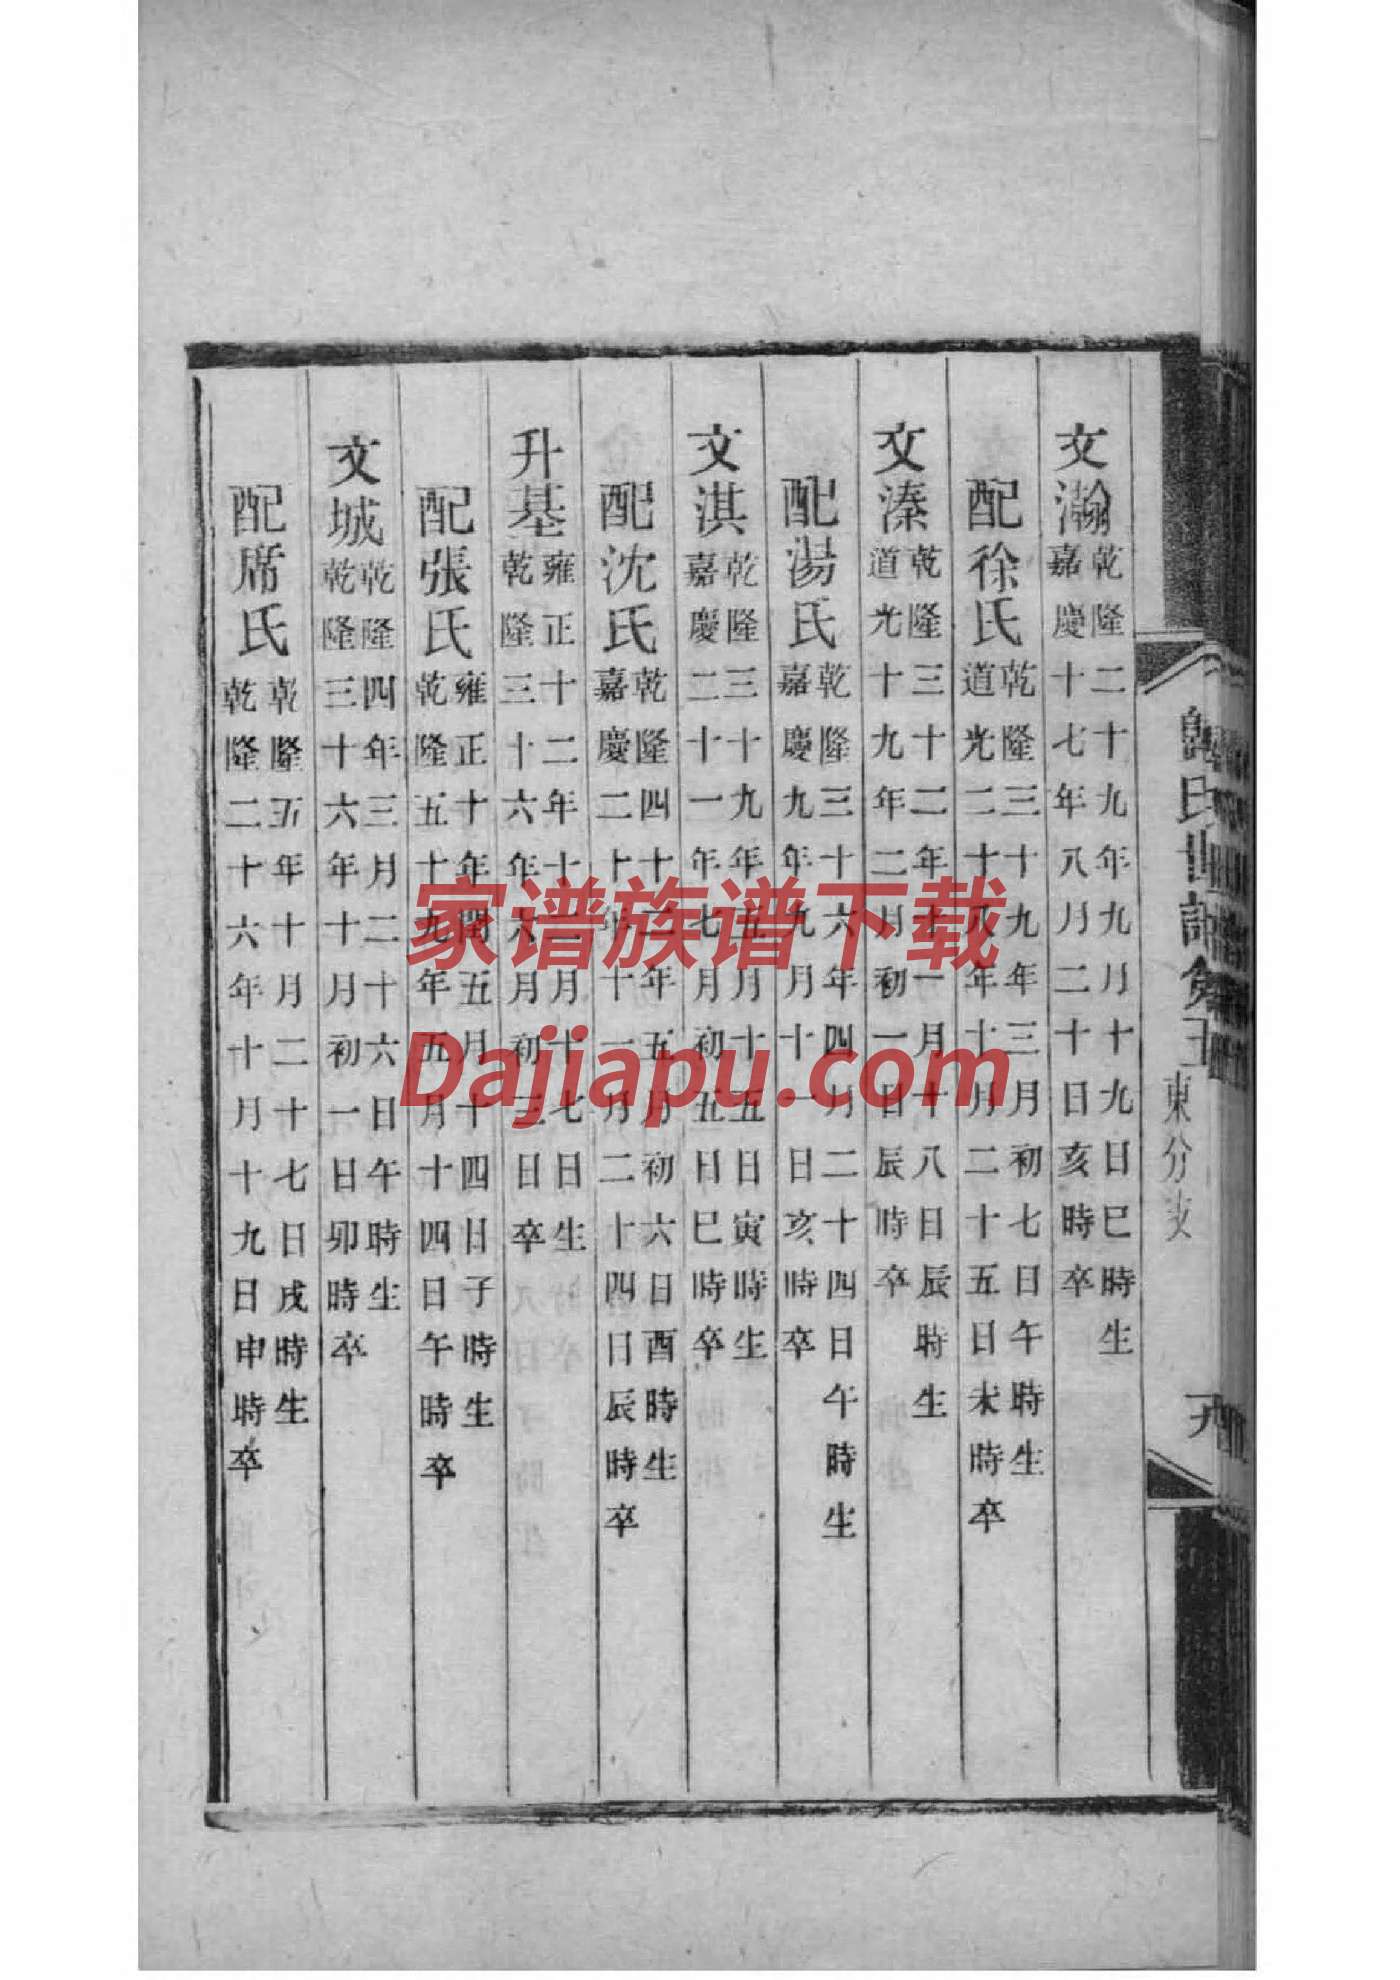 文瀚 乾隆二十九年九月十九日巳時生
嘉慶十七年八月二十日亥時卒
配徐氏 乾隆三十九年三月初七日午時生
道光二十八年十月二十五日未時卒
文溱 乾隆三十二年十一月十八日辰時生
道光十九年二月初一日辰時卒
配湯氏 乾隆三十六年四月二十四日午時生
嘉慶九年九月十一日亥時卒
文淇 乾隆三十九年五月十五日寅時生
嘉慶二十一年七月初五日巳時卒
配沈氏 乾隆四十二年五月初六日酉時生
嘉慶二十年十一月二十四日辰時卒
升基 雍正十二年十二月十七日生
乾隆三十六年六月初三日卒
配張氏 雍正十年閏五月十四日子時生
乾隆五十九年五月十四日午時卒
文城 乾隆四年三月二十六日午時生
乾隆三十六年十月初一日卯時卒
配席氏 乾隆五年十月二十七日戌時生
乾隆二十六年十月十九日申時卒
氏世譜
東分支
家谱族谱下载
Dajiapu.com